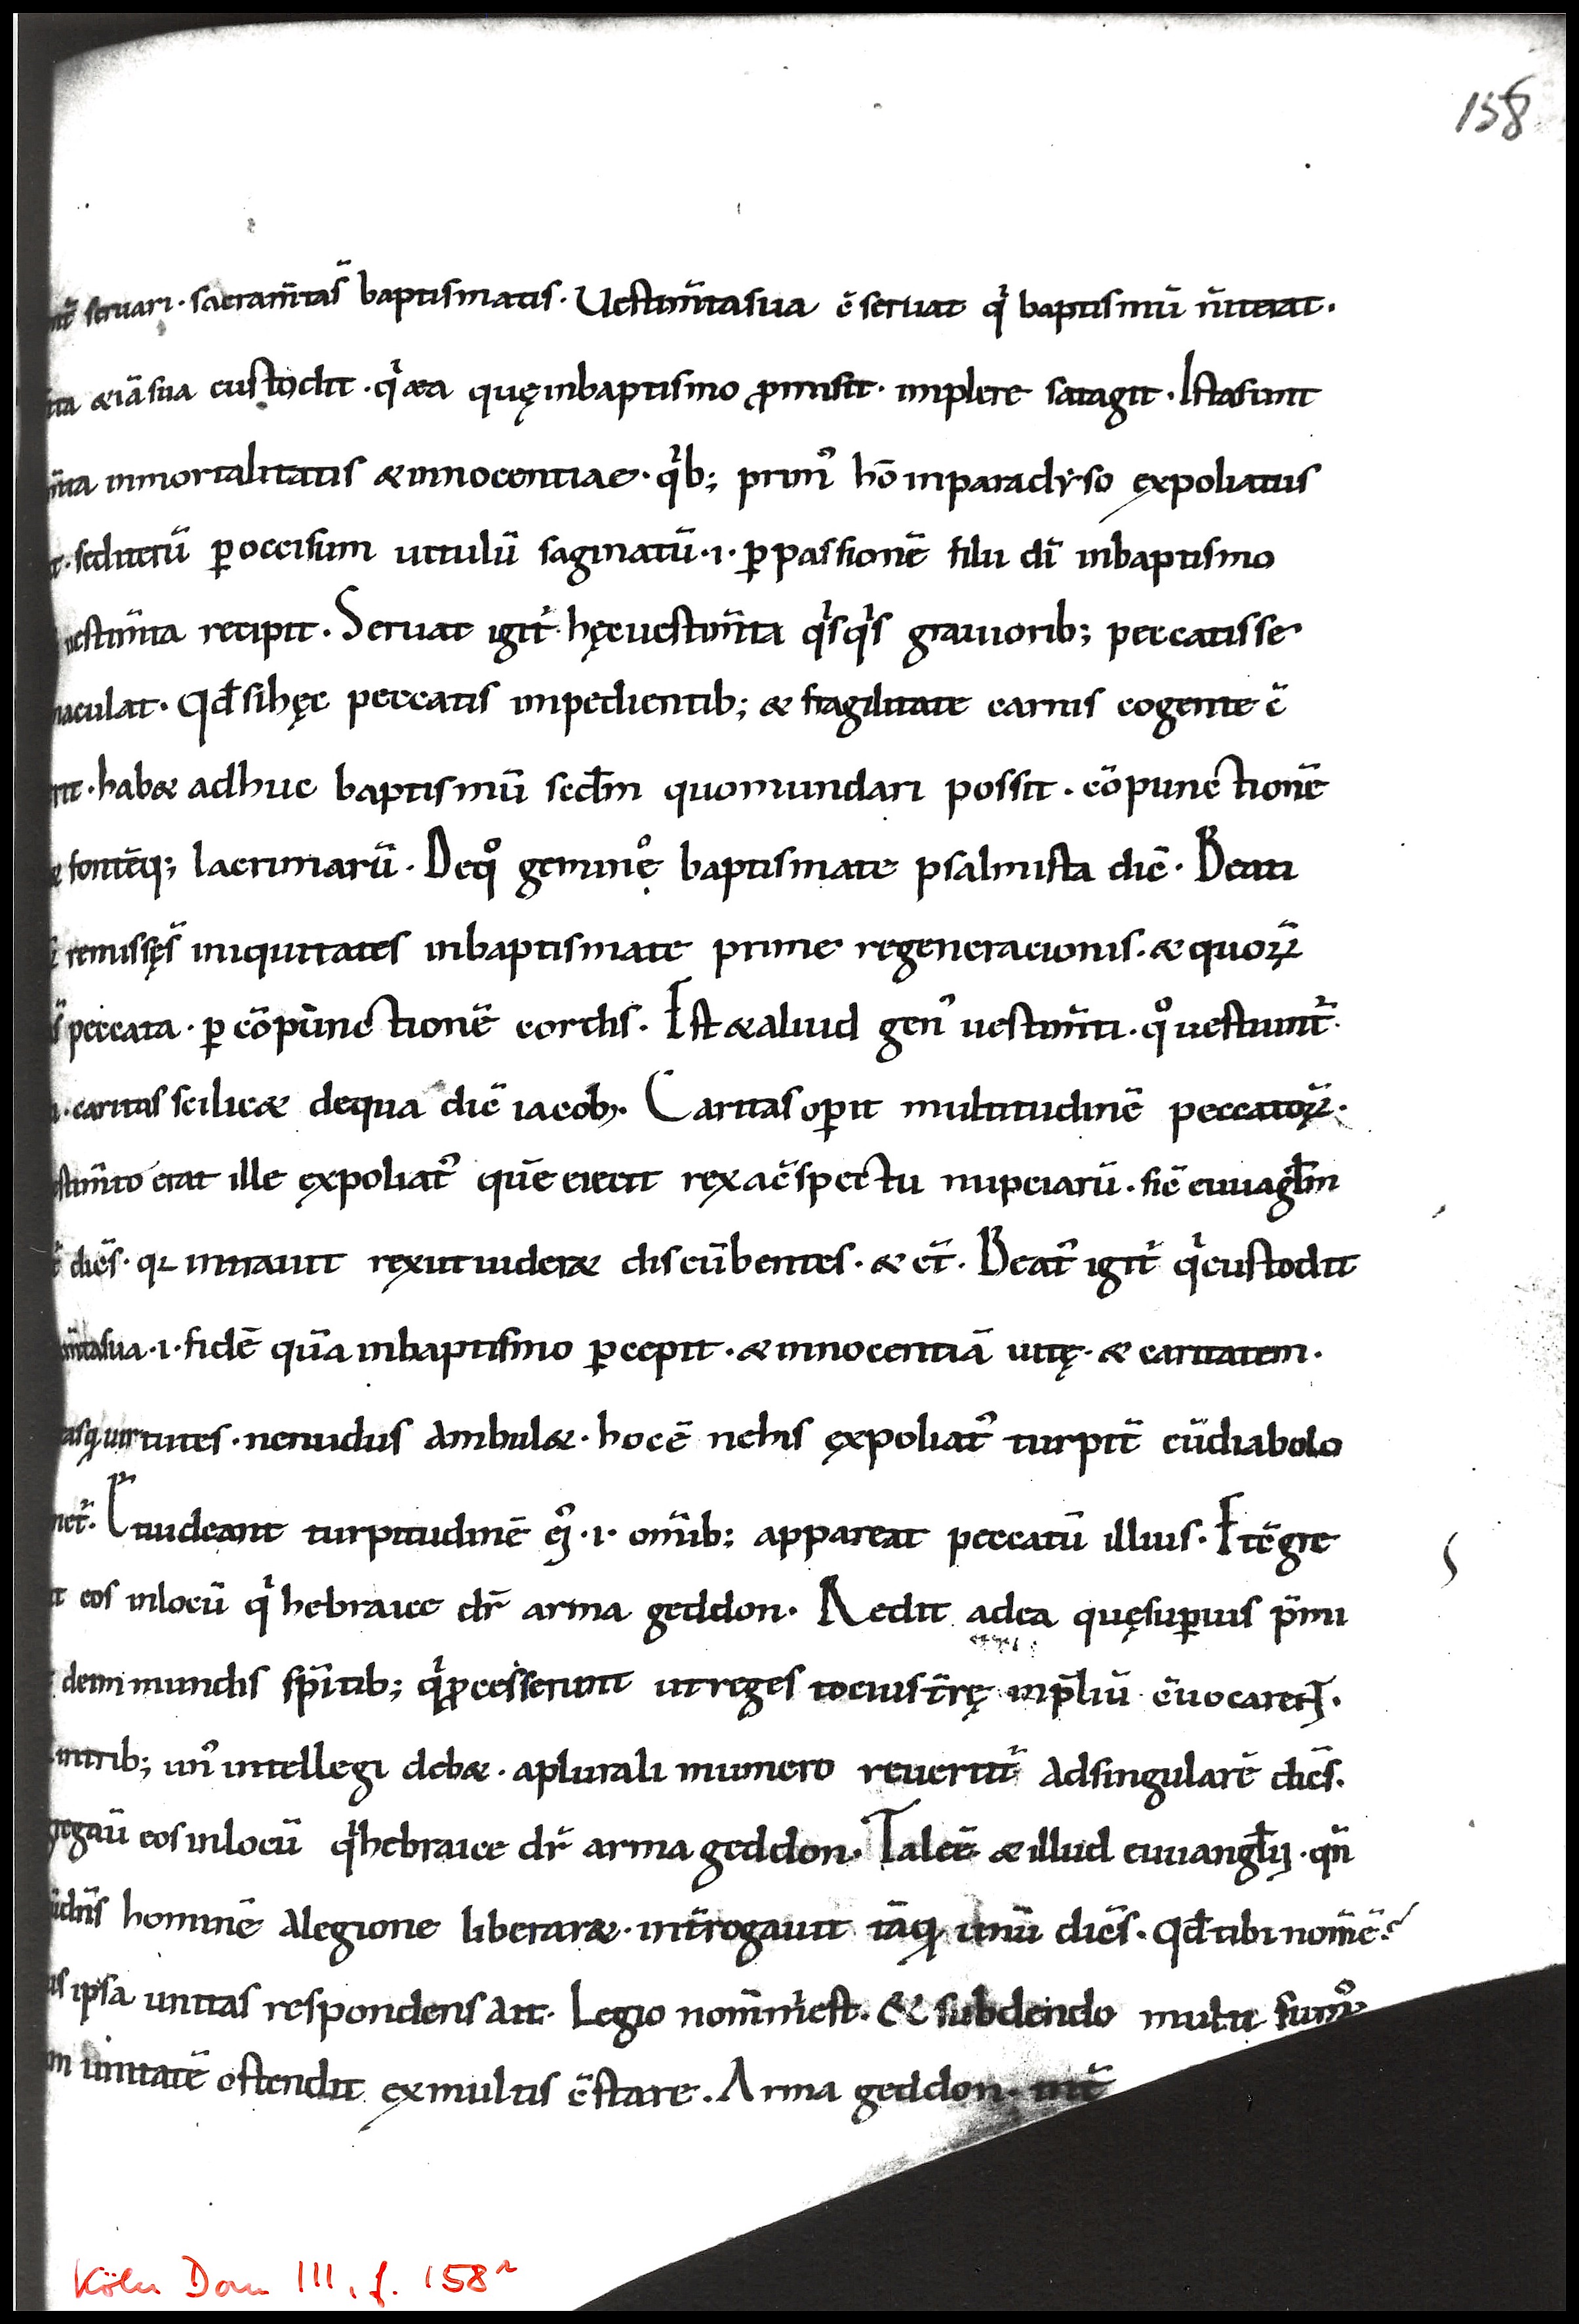 158
seruari · sacram̅tas̅ baptismatis · Uestim̅tasua c̅seruat qͥ baptismu̅ n̅iterat ·
&ia̅ sua custodit · qͥ &ea quęinbaptismo ꝓmisit · implere satagit · Istasunt
inmortalitatis &innocentiae · qͥb; primꝰ ho̅ inparadyso expoliatus
seditеru̅ ꝑoccisum uitulu̅ saginatu̅ · i · ꝑpassione̅ filii di̅ inbaptismo
uestim̅ta recipit · Seruat igit̃ hęcuestim̅ta qͥsqͥs grauiorib; peccatisse
maculat · Qđsihęc peccatis impedientib; & fragilitate carnis cogente c̅
habæ adhuc baptismu̅ scđm quomundari possit · co̅punctione̅
fonte̅q; lacrimaru̅ · Deqͦ geminͦę baptismate psalmista dic̅ · Beati
remissęs̅ iniquitates inbaptismate prime regeneracionis · & quoꝝ
peccata · ꝑ co̅punctione̅ cordis · Est &aliud genꝰ uestim̅ti · qͦ uestiunt̃
caritas scilicæ dequa dic̅ iacob; · Caritas oꝑit multitudine̅ peccatoꝝ ·
erat ille expoliatꝰ que̅ eiecit rex ac̅spectu nupciaru̅ · sic̅ euuagłm
dic̅s · qꝛ intrauit rexutuideræ discu̅bentes · & ct̅ · Beatꝰ igit̃ qͥcustodit
sua · i · fide̅ qua̅ inbaptismo ꝑcepit · &innocentia̅ uitę · & caritatem ·
uirtutes · nenudus ambulæ · hoce̅ nehis expoliatꝰ turpit̅ cu̅diabolo
Etuideant turpitudine̅ eiꝰ · i · om̅ib; appareat peccatu̅ illius · Et c̅gre
eos inlocu̅ qͥ hebraice dr̅ arma geddon · Redit adea quęsuꝑuis p̅mi
deinmundis sp̅itib; qͥꝓcesserunt utreges tociust̅rę inp̅liu̅ c̅uocaret̃ ·
unꝰ intellegi debæ · aplurali numero reuertit̃ adsingulare̅ dic̅s ·
eosinlocu̅ qͥhebraice dr̅ arma geddon · Talee̅ & illud euuangłij · qn̅
homine̅ alegione liberaræ · int̅rogauit ta̅qͣ unu̅ dic̅s · Qđtibi nom̅e̅ ·
ipsa unitas respondens ait · Legio nom̅m̅est · & subdendo multi sumꝰ
unitate̅ ostendit exmultis c̅stare · Arma geddon ·
Köln Dom 111, f. 158ʳ